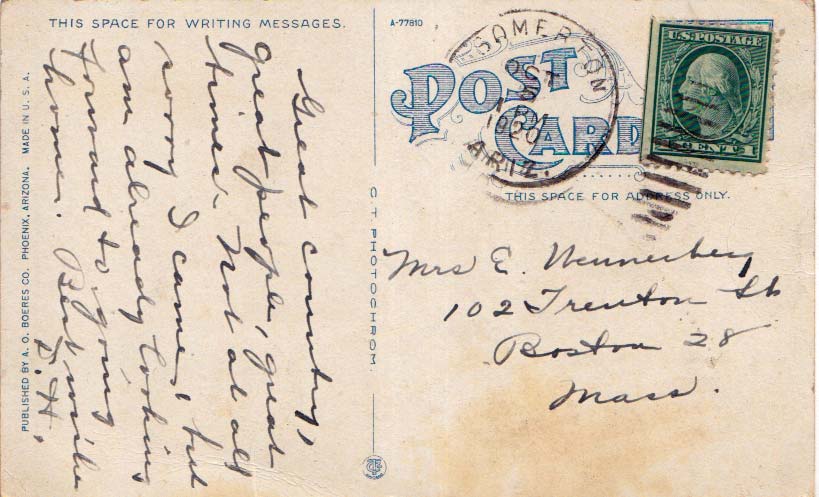 THIS SPACE FOR WRITING MESSAGES.
Great country,
great people, great
times. Not at all
sorry I came, but
am already looking
forward to going
home. Best wishes
D.H.
PUBLISHED BY A. O. BOERES CO. PHOENIX, ARIZONA. MADE IN U. S. A.
C T PHOTOCHROM.
A-77810
POST
CARD
SOMERTON
OCT
2
1920
ARIZ.
U.S. POSTAGE
1 CENTS 1
THIS SPACE FOR ADDRESS ONLY.
Mrs E. Wennerberg
102 Trenton St
Boston 28
Mass.